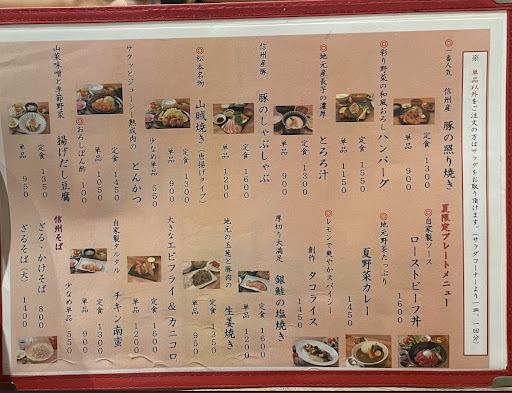 ※単品以外をご注文の方はサラダをお取り頂けます。(サラダコーナーより一皿、一回分)
◎一番人気 信州産 豚の照り焼き
定食 1300
単品 900
彩り野菜の和風おろしハンバーグ
定食 1550
単品 1150
◎地元産長芋の濃厚 とろろ汁
定食 1300
単品 900
信州産豚 豚のしゃぶしゃぶ
定食 1600
単品 1200
◎松本名物 山賊焼き(唐揚げタイプ)
定食 1300
単品 900
少なめ単品 550
サクッとジューシー熟成肉の とんかつ
定食 1450
単品 1050
◎おろしぽん酢 100
山菜味噌と季節野菜 揚げだし豆腐
定食 1350
単品 950
夏限定プレートメニュー
◎自家製ソース ローストビーフ丼
1600
◎地元野菜たっぷり 夏野菜カレー
1450
◎レモンで爽やかスパイシー 創作 タコライス
1450
厚切り大満足 銀鮭の塩焼き
定食 1600
単品 1200
地元の玉葱と豚肉の 生姜焼き
定食 1350
単品 950
大きなエビフライ&カニコロ
定食 1600
単品 1200
自家製タルタル チキン南蛮
定食 1300
単品 900
少なめ 単品 550
信州そば
ざる・かけそば 800
ざるそば(大) 1400